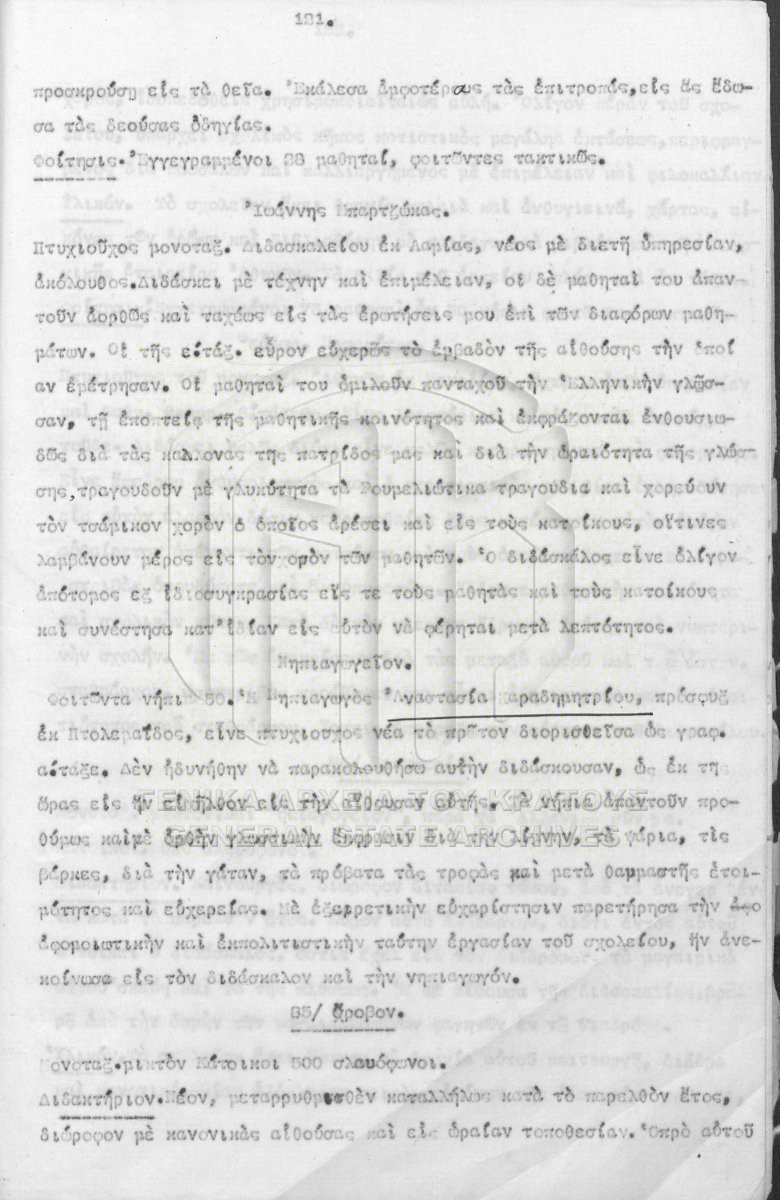 121.
προσκρούσῃ εἰς τὰ θεῖα. Ἐκάλεσα ἀμφοτέρους τὰς ἐπιτροπάς,εἰς ἃς ἔδω-
σα τὰς δεούσας ὁδηγίας.
Φοίτησις. Ἐγγεγραμμένοι 28 μαθηταί, φοιτῶντες τακτικῶς.
Ἰωάννης Μπαρτζώκας.
Πτυχιοῦχος μονοταξ. Διδασκαλείου ἐκ Λαμίας, νέος μὲ διετῆ ὑπηρεσίαν,
ἀκόλουθος.Διδάσκει μὲ τέχνην καὶ ἐπιμέλειαν, οἱ δὲ μαθηταί του ἀπαν-
τοῦν ἀορθῶς καὶ ταχέως εἰς τὰς ἐρωτήσεις μου ἐπὶ τῶν διαφόρων μαθη-
μάτων. Οἱ τῆς ε΄τάξ. εὗρον εὐχερῶς τὸ ἐμβαδὸν τῆς αἰθούσης τὴν ὁποί
αν ἐμέτρησαν. Οἱ μαθηταί του ὁμιλοῦν πανταχοῦ τὴν Ἑλληνικὴν γλῶσ-
σαν, τῇ ἐποπτείᾳ τῆς μαθητικῆς κοινότητος καὶ ἐκφράζονται ἐνθουσιω-
δῶς διὰ τὰς καλλονὰς τῆς πατρίδος μας καὶ διὰ τὴν ὡραιότητα τῆς γλώσ-
σης,τραγουδοῦν μὲ γλυκύτητα τὰ Ρουμελιώτικα τραγούδια καὶ χορεύουν
τὸν τσάμικον χορὸν ὁ ὁποῖος ἀρέσει καὶ εἰς τοὺς κατοίκους, οἵτινες
λαμβάνουν μέρος εἰς τὸν χορὸν τῶν μαθητῶν. Ὁ διδάσκαλος εἶνε ὀλίγον
ἀπότομος ἐξ ἰδιοσυγκρασίας εἴς τε τοὺς μαθητὰς καὶ τοὺς κατοίκους
καὶ συνέστησα κατ'ἰδίαν εἰς αὐτὸν νὰ φέρηται μετὰ λεπτότητος.
Νηπιαγωγεῖον.
Φοιτῶντα νήπια 50. Ἡ Νηπιαγωγὸς Ἀναστασία Καραδημητρίου, πρόσφυξ
ἐκ Πτολεμαΐδος, εἶνε πτυχιοῦχος νέα τὸ πρῶτον διορισθεῖσα ὡς γραφ.
α΄τάξε. Δὲν ἠδυνήθην νὰ παρακολουθήσω αὐτὴν διδάσκουσαν, ὡς ἐκ τῆ
ὥρας εἰς ἣν εἰσῆλθον εἰς τὴν αἴθουσαν αὐτῆς. Τὰ νήπια ἀπαντοῦν προ-
θύμως καὶ μὲ ὀρθὴν γλωσσικὴν ἔκφρασιν διὰ τὴν λίμνην, τὰ ψάρια, τὶς
βάρκες, διὰ τὴν γάταν, τὰ πρόβατα τὰς τροφὰς καὶ μετὰ θαυμαστῆς ἑτοι-
μότητος καὶ εὐχερείας. Μὲ ἐξαιρετικὴν εὐχαρίστησιν παρετήρησα τὴν ἀφο
ἀφομοιωτικὴν καὶ ἐκπολιτιστικὴν ταύτην ἐργασίαν τοῦ σχολείου, ἣν ἀνε-
κοίνωσα εἰς τὸν διδάσκαλον καὶ τὴν νηπιαγωγόν.
35/ Ὄροβον.
Μονοταξ.μικτὸν Κάτοικοι 500 σλαυόφωνοι.
Διδακτήριον.Νέον, μεταρρυθμισθὲν καταλλήλως κατὰ τὸ παρελθὸν ἔτος,
διώροφον μὲ κανονικὰς αἰθούσας καὶ εἰς ὡραίαν τοποθεσίαν. Ὁπρὸ αὐτοῦ
ΓΕΝΙΚΑ ΑΡΧΕΙΑ ΤΟΥ ΚΡΑΤΟΥΣ
GENERAL STATE ARCHIVES